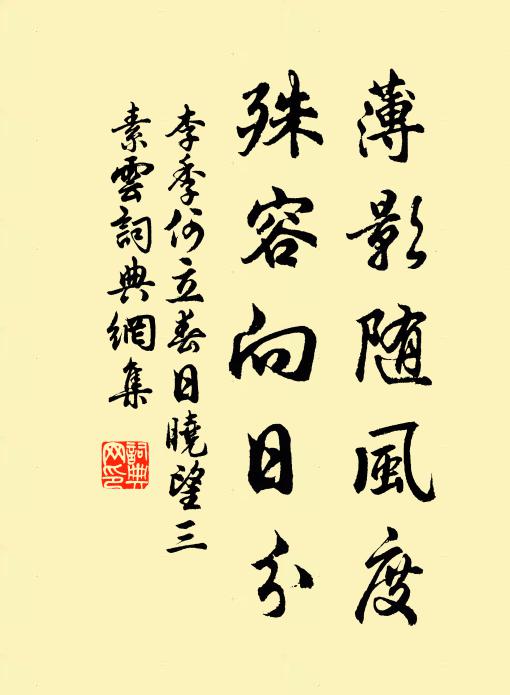 薄影随風度
殊容向日分
李季何立春日曉望三
素雲詞典網集
詞典
网印